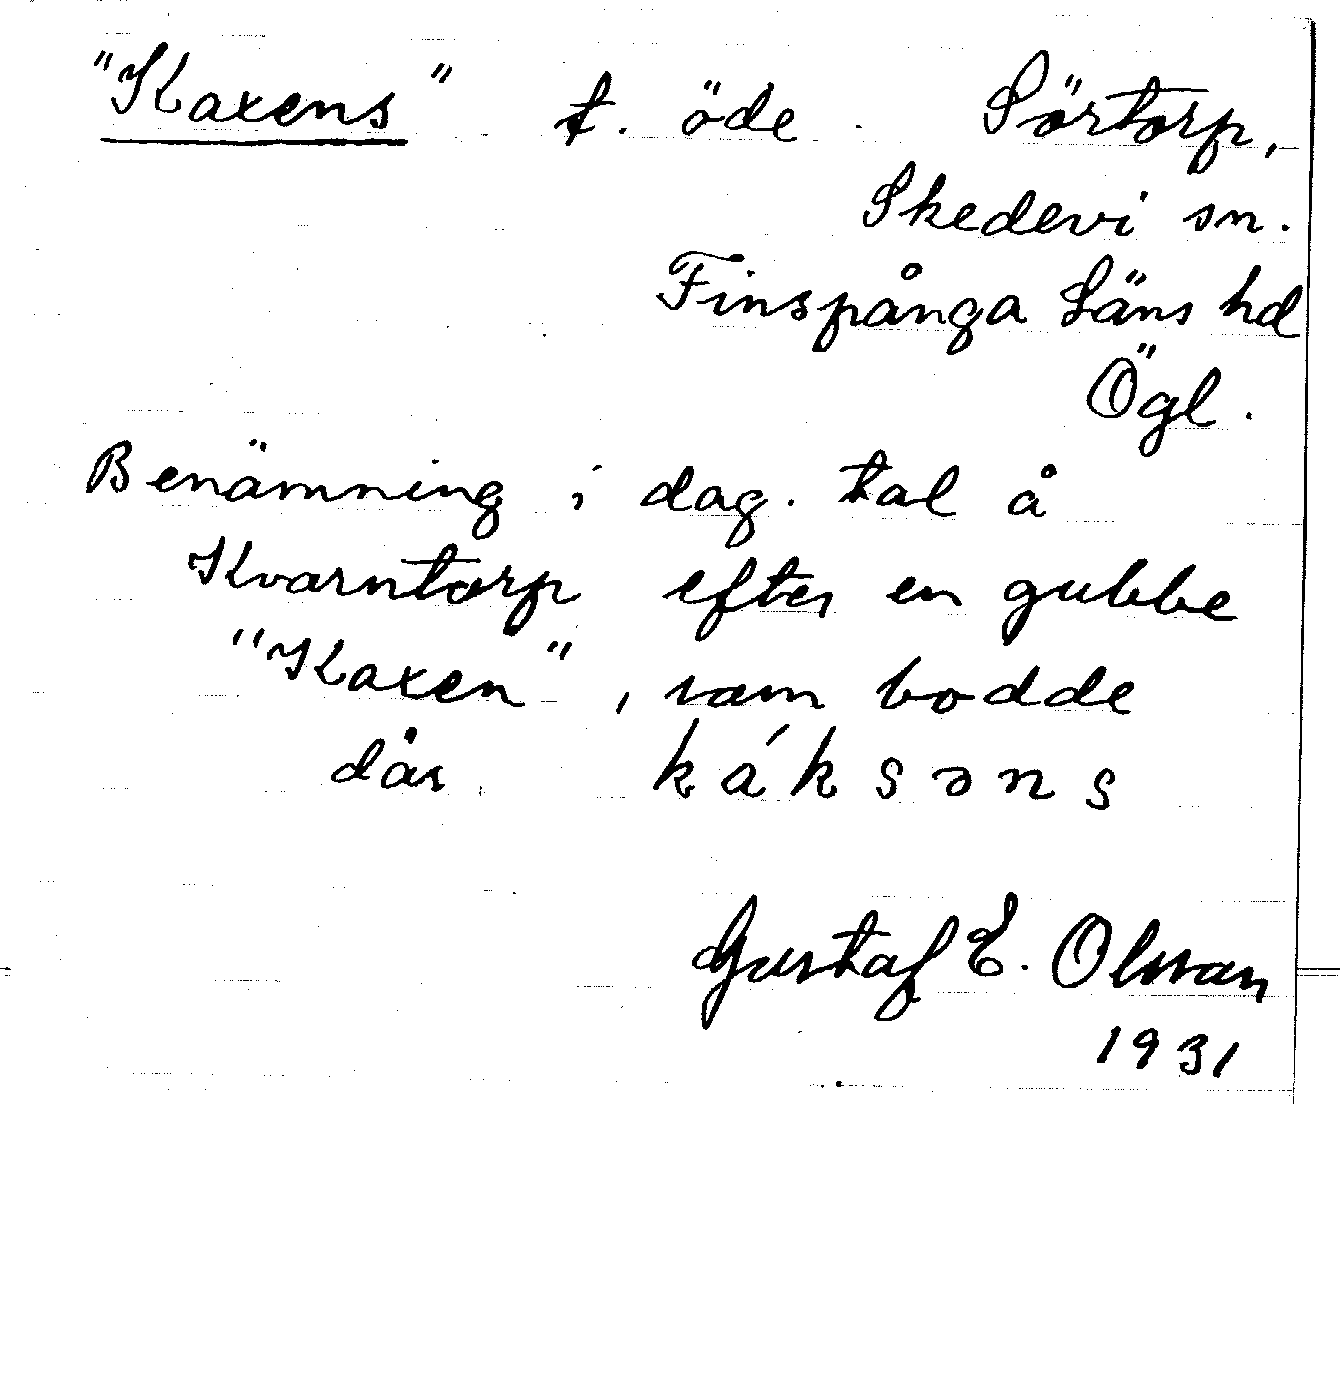 "Kaxens" t. öde. Sörtorp,
Skedevi sn.
Finspånga Läns hd
Ögl.
Benämning i dag. tal å
Kvarntorp efter en gubbe
"Kaxen", som bodde
där. káksəns
Gustaf E. Olsson
1931